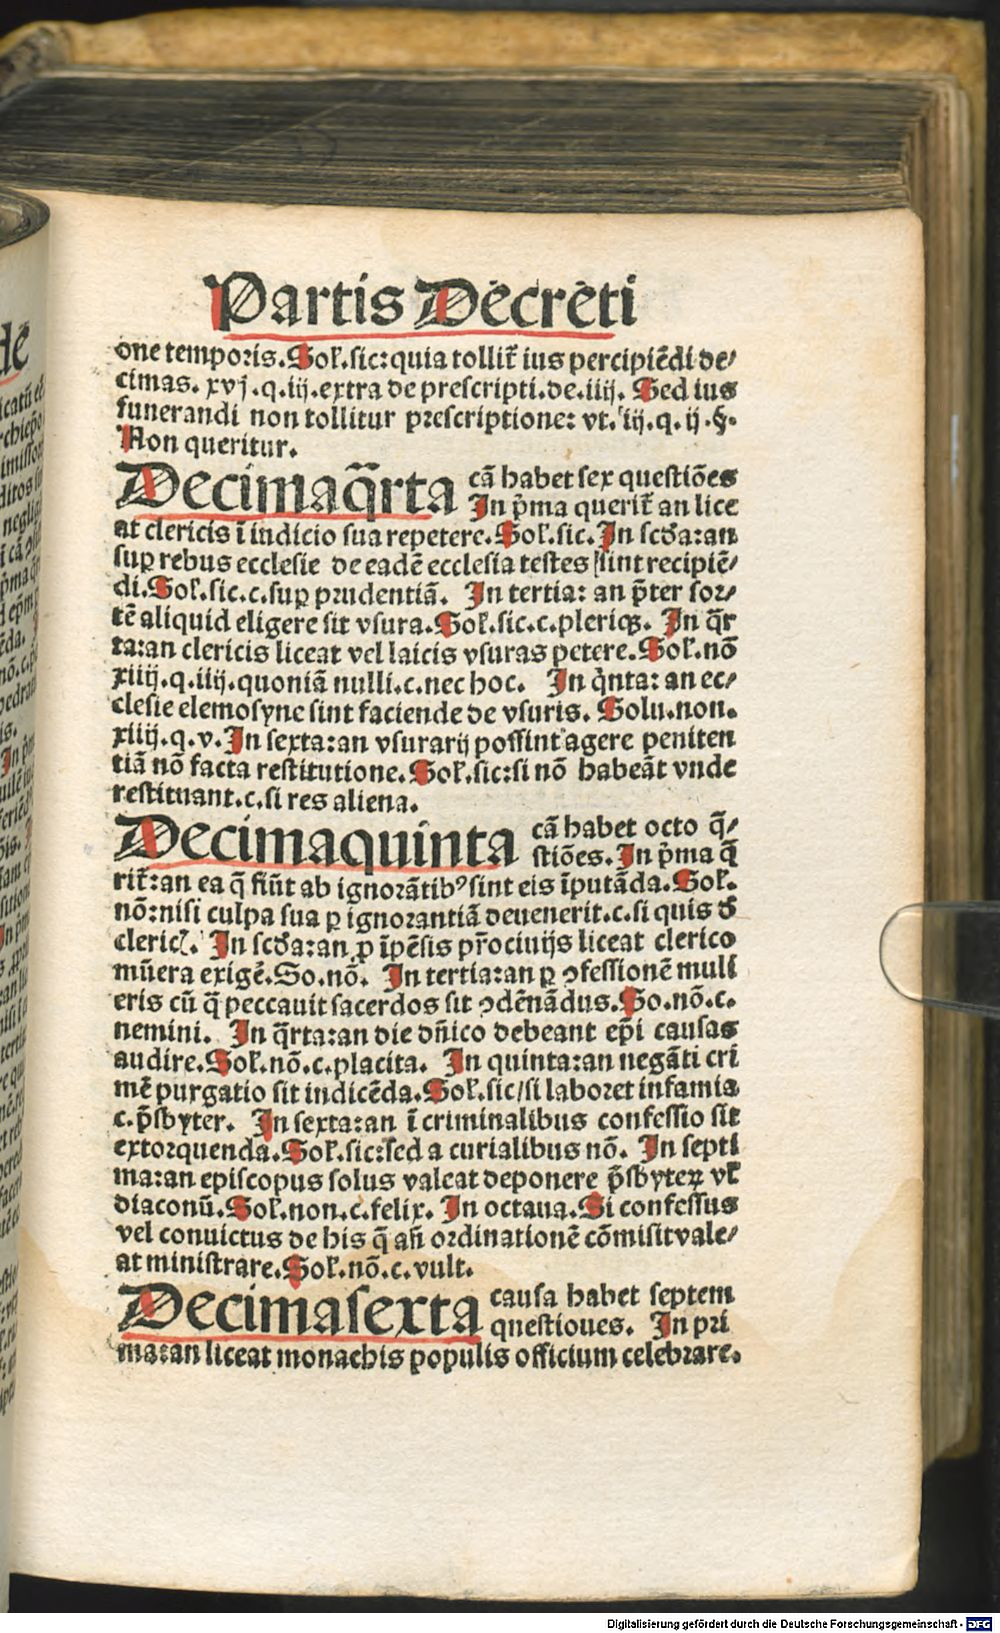 Partis Decreti
one temporis. Sol̄. sic: quia tollit̄ ius percipiēdi de⸗
cimas. xvj. q. iij. extra de prescripti. de. iiij. Sed ius
funerandi non tollitur prescriptione: vt. iij. q. ij. §.
Non queritur.
Decimaq̄rta cā habet sex questiōes
In p̄ma querit̄ an lice
at clericis ī indicio sua repetere. Sol̄. sic. In scďa: an
suꝑ rebus ecclesie de eadē ecclesia testes sint recipiē⸗
di. Sol̄. sic. c. suꝑ prudentiā. In tertia: an p̄ter sor⸗
tē aliquid eligere sit vsura. Sol̄. sic. c. pleriqꝫ. In q̄r
ta: an clericis liceat vel laicis vsuras petere. Sol̄. nō
xiiij. q. iiij. quoniā nulli. c. nec hoc. In q̇nta: an ec⸗
clesie elemosyne sint faciende de vsuris. Solu. non.
xiiij. q. v. In sexta: an vsurarij possint agere peniten
tiā nō facta restitutione. Sol̄. sic: si nō habeāt vnde
restituant. c. si res aliena.
Decimaquinta cā habet octo q̄⸗
stiōes. In p̄ma q̄
rit̄: an ea q̄ fiūt ab ignorātibꝰ sint eis īputāda. Sol̄.
nō: nisi culpa sua ꝑ ignorantiā deuenerit. c. si quis ď
clericꝭ. In scďa: an ꝑ īpēsis pr̄ociuijs liceat clerico
mūera exigē. So. nō. In tertia: an ꝑ ꝯfessionē muli
eris cū q̄ peccauit sacerdos sit ꝯdēnādus. So. nō. c.
nemini. In q̄rta: an die dn̄ico debeant ep̄i causas
audire. Sol̄. nō. c. placita. In quinta: an negāti cri
mē purgatio sit indicēda. Sol̄. sic/ si laboret infamia
c. p̄sbyter. In sexta: an ī criminalibus confessio sit
extorquenda. Sol̄. sic: sed a curialibus nō. In septi
ma: an episcopus solus valeat deponere p̄sbyteꝝ vl̄
diaconū. Sol̄. non. c. felix. In octaua. Si confessus
vel conuictus de his q̄ añ ordinationē cōmisit vale⸗
at ministrare. Sol̄. nō. c. vult.
Decimasexta causa habet septem
questioues. In pri
ma: an liceat monachis populis officium celebrare.
Digitalisierung gefördert durch die Deutsche Forschungsgemeinschaft - DFG